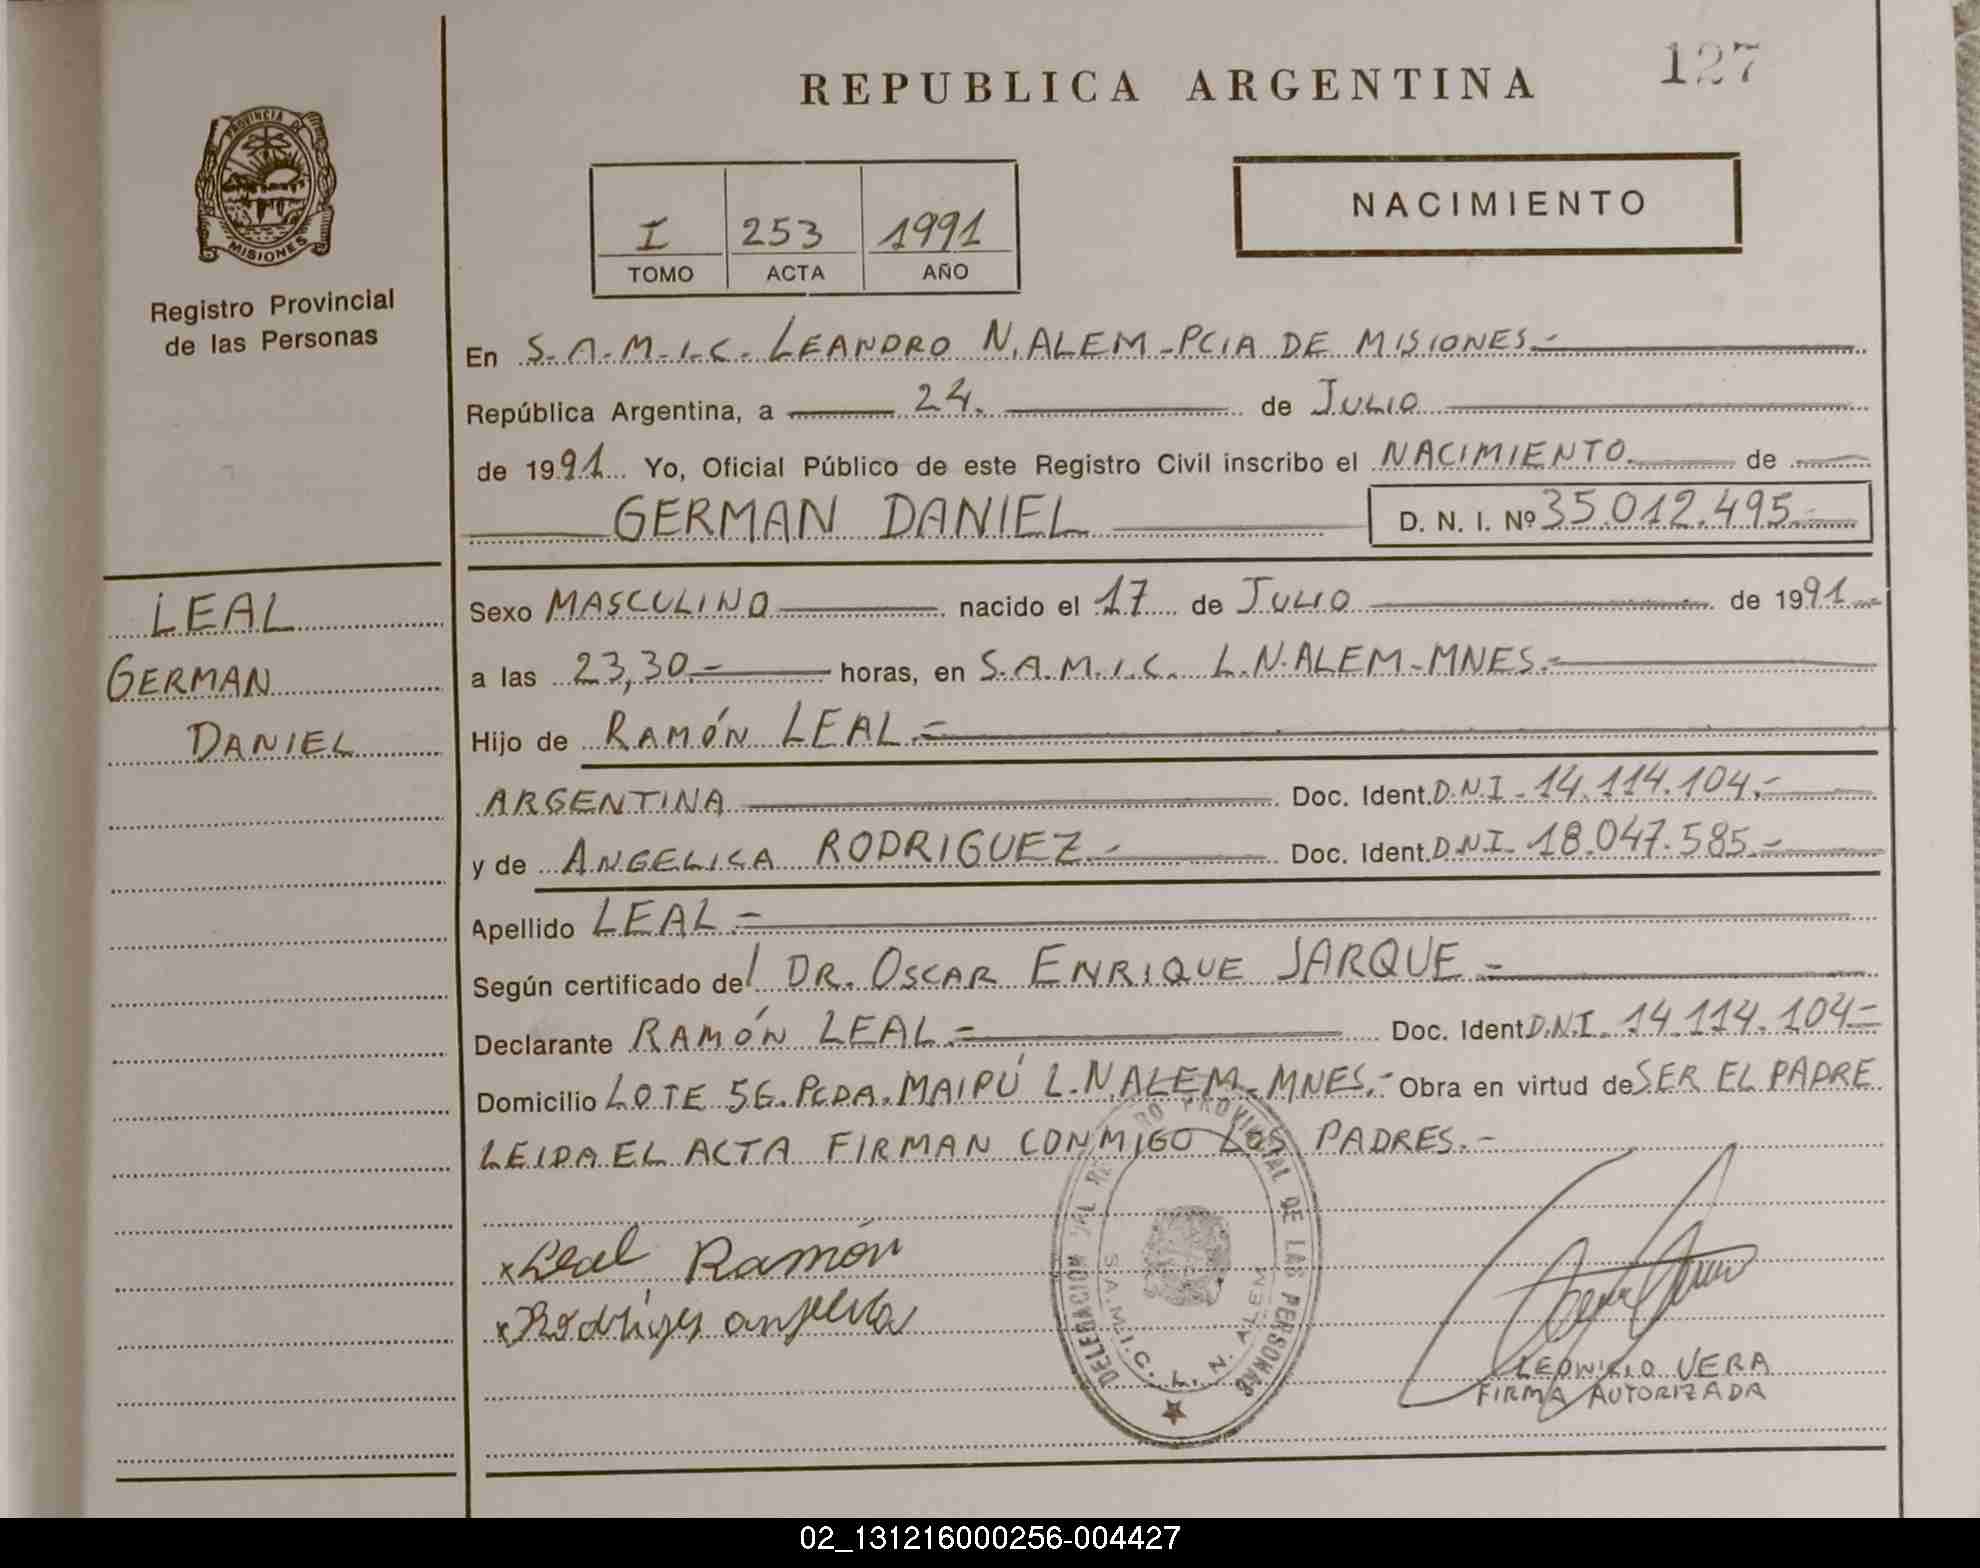 REPUBLICA ARGENTINA
127
PROVINCIA DE
MISIONES
Registro Provincial
de las Personas
I 253 1991
TOMO ACTA AÑO
NACIMIENTO
En S.A.M.I.C. LEANDRO N. ALEM - PCIA DE MISIONES.-
República Argentina, a 24. de JULIO
de 1991 Yo, Oficial Público de este Registro Civil inscribo el NACIMIENTO de
GERMAN DANIEL D. N. I. Nº 35.012.495.-
LEAL
GERMAN
DANIEL
Sexo MASCULINO nacido el 17 de JULIO de 1991
a las 23,30.- horas, en S.A.M.I.C. L.N.ALEM-MNES.-
Hijo de RAMÓN LEAL.-
ARGENTINA Doc. Ident. D.N.I - 14.114.104.-
y de ANGELICA RODRIGUEZ.- Doc. Ident. D.N.I - 18.047.585.-
Apellido LEAL.-
Según certificado del DR. OSCAR ENRIQUE JARQUE.-
Declarante RAMÓN LEAL.- Doc. Ident D.N.I - 14.114.104-
Domicilio LOTE 56. PCDA. MAIPÚ L.N ALEM-MNES.- Obra en virtud de SER EL PADRE
LEIDA EL ACTA FIRMAN CONMIGO LOS PADRES.-
x Leal Ramón
x Rodriges anjelica
DELEGACION DEL REGISTRO PROVINCIAL DE LAS PERSONAS
S.A.M.I.C. L. N. ALEM
VERA
FIRMA AUTORIZADA
02_131216000256-004427